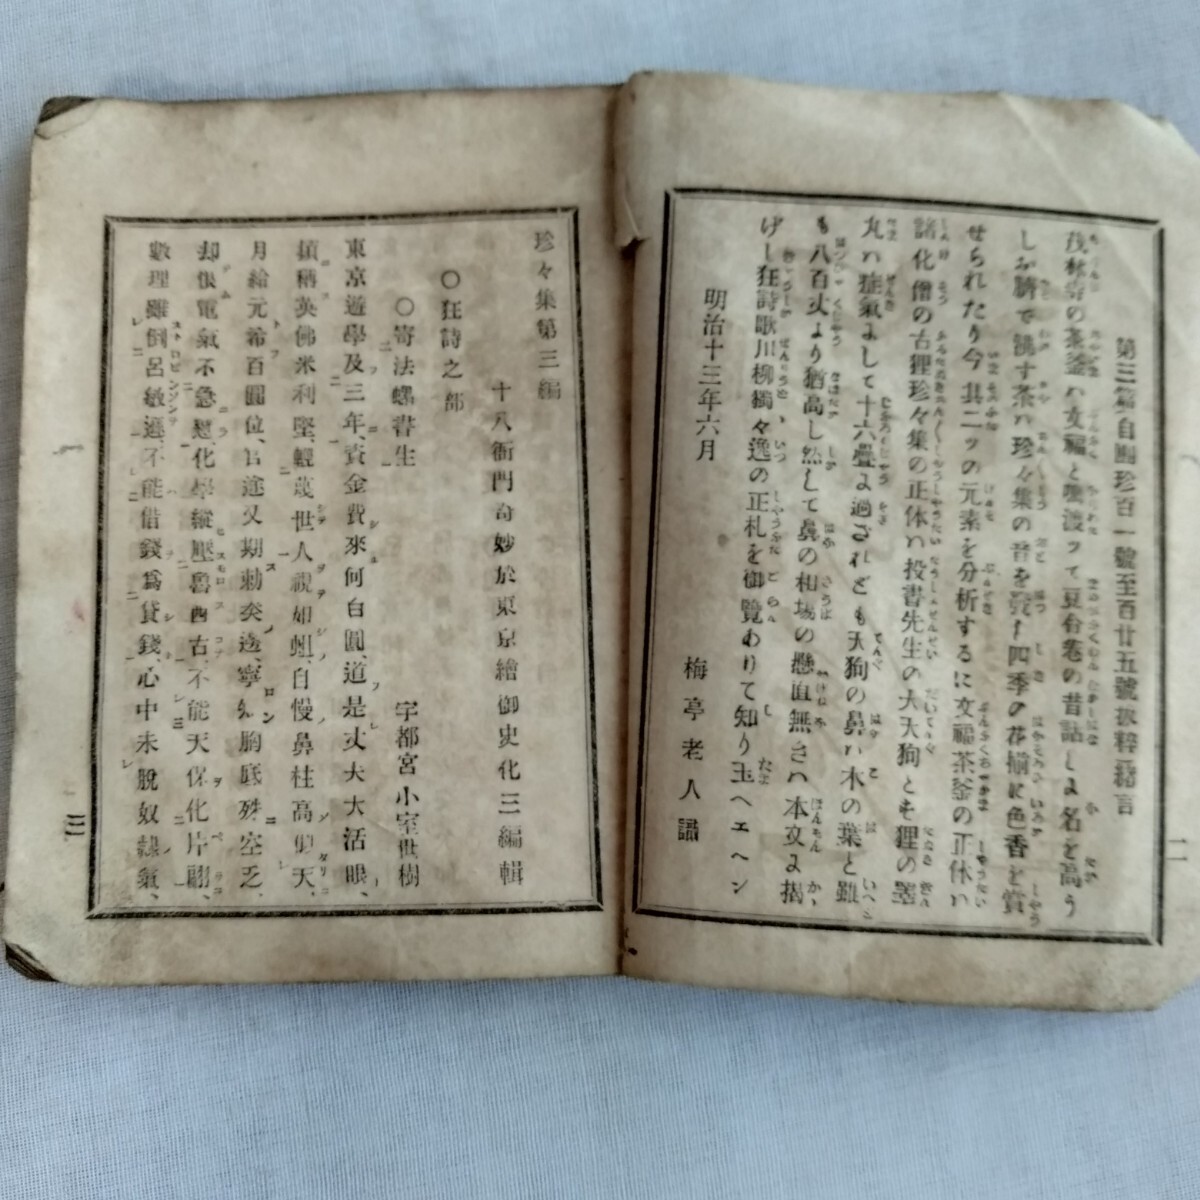 第三篇自團珍百一號至百廿五號抜粹緒言
茂林寺の茶釜ハ文福と囃渡ッて豆合巻の昔話しよ名を高う
しお臍で沸す茶ハ珍々集の音を發し四季の花揃に色香を賞
せられたり今其二ッの元素を分析するに文福茶釜の正休ハ
諸化僧の古狸珍々集の正体ハ投書先生の大天狗とも狸の睾
丸ハ疝氣よして十六疊よ過ざれども天狗の鼻ハ木の葉と雖
も八百丈より猶高し然して鼻の相塲の懸直無きハ本文よ揭
げし狂詩歌川柳獨々逸の正札を御覽ありて知り玉へエヘン
明治十三年六月
梅亭老人誌
二
珍々集第三編
十八衞門奇妙於東京繪御史化三編輯
○狂詩之部
○寄法螺書生
宇都宮小室世樹
東京遊學及三年、資金費來何百圓、道是丈夫大活眼、
頻稱英佛米利堅、輕蔑世人視如蛆、自慢鼻柱高似天、
月給元希百圓位、官途又期勅奏遷、寧知胸底殊空乏、
却恨電氣不急趣化學縱壓魯西古、不能天保化片翩、
數理雖倒呂敏遜、不能借錢爲貸錢、心中未脫奴隷氣、
三